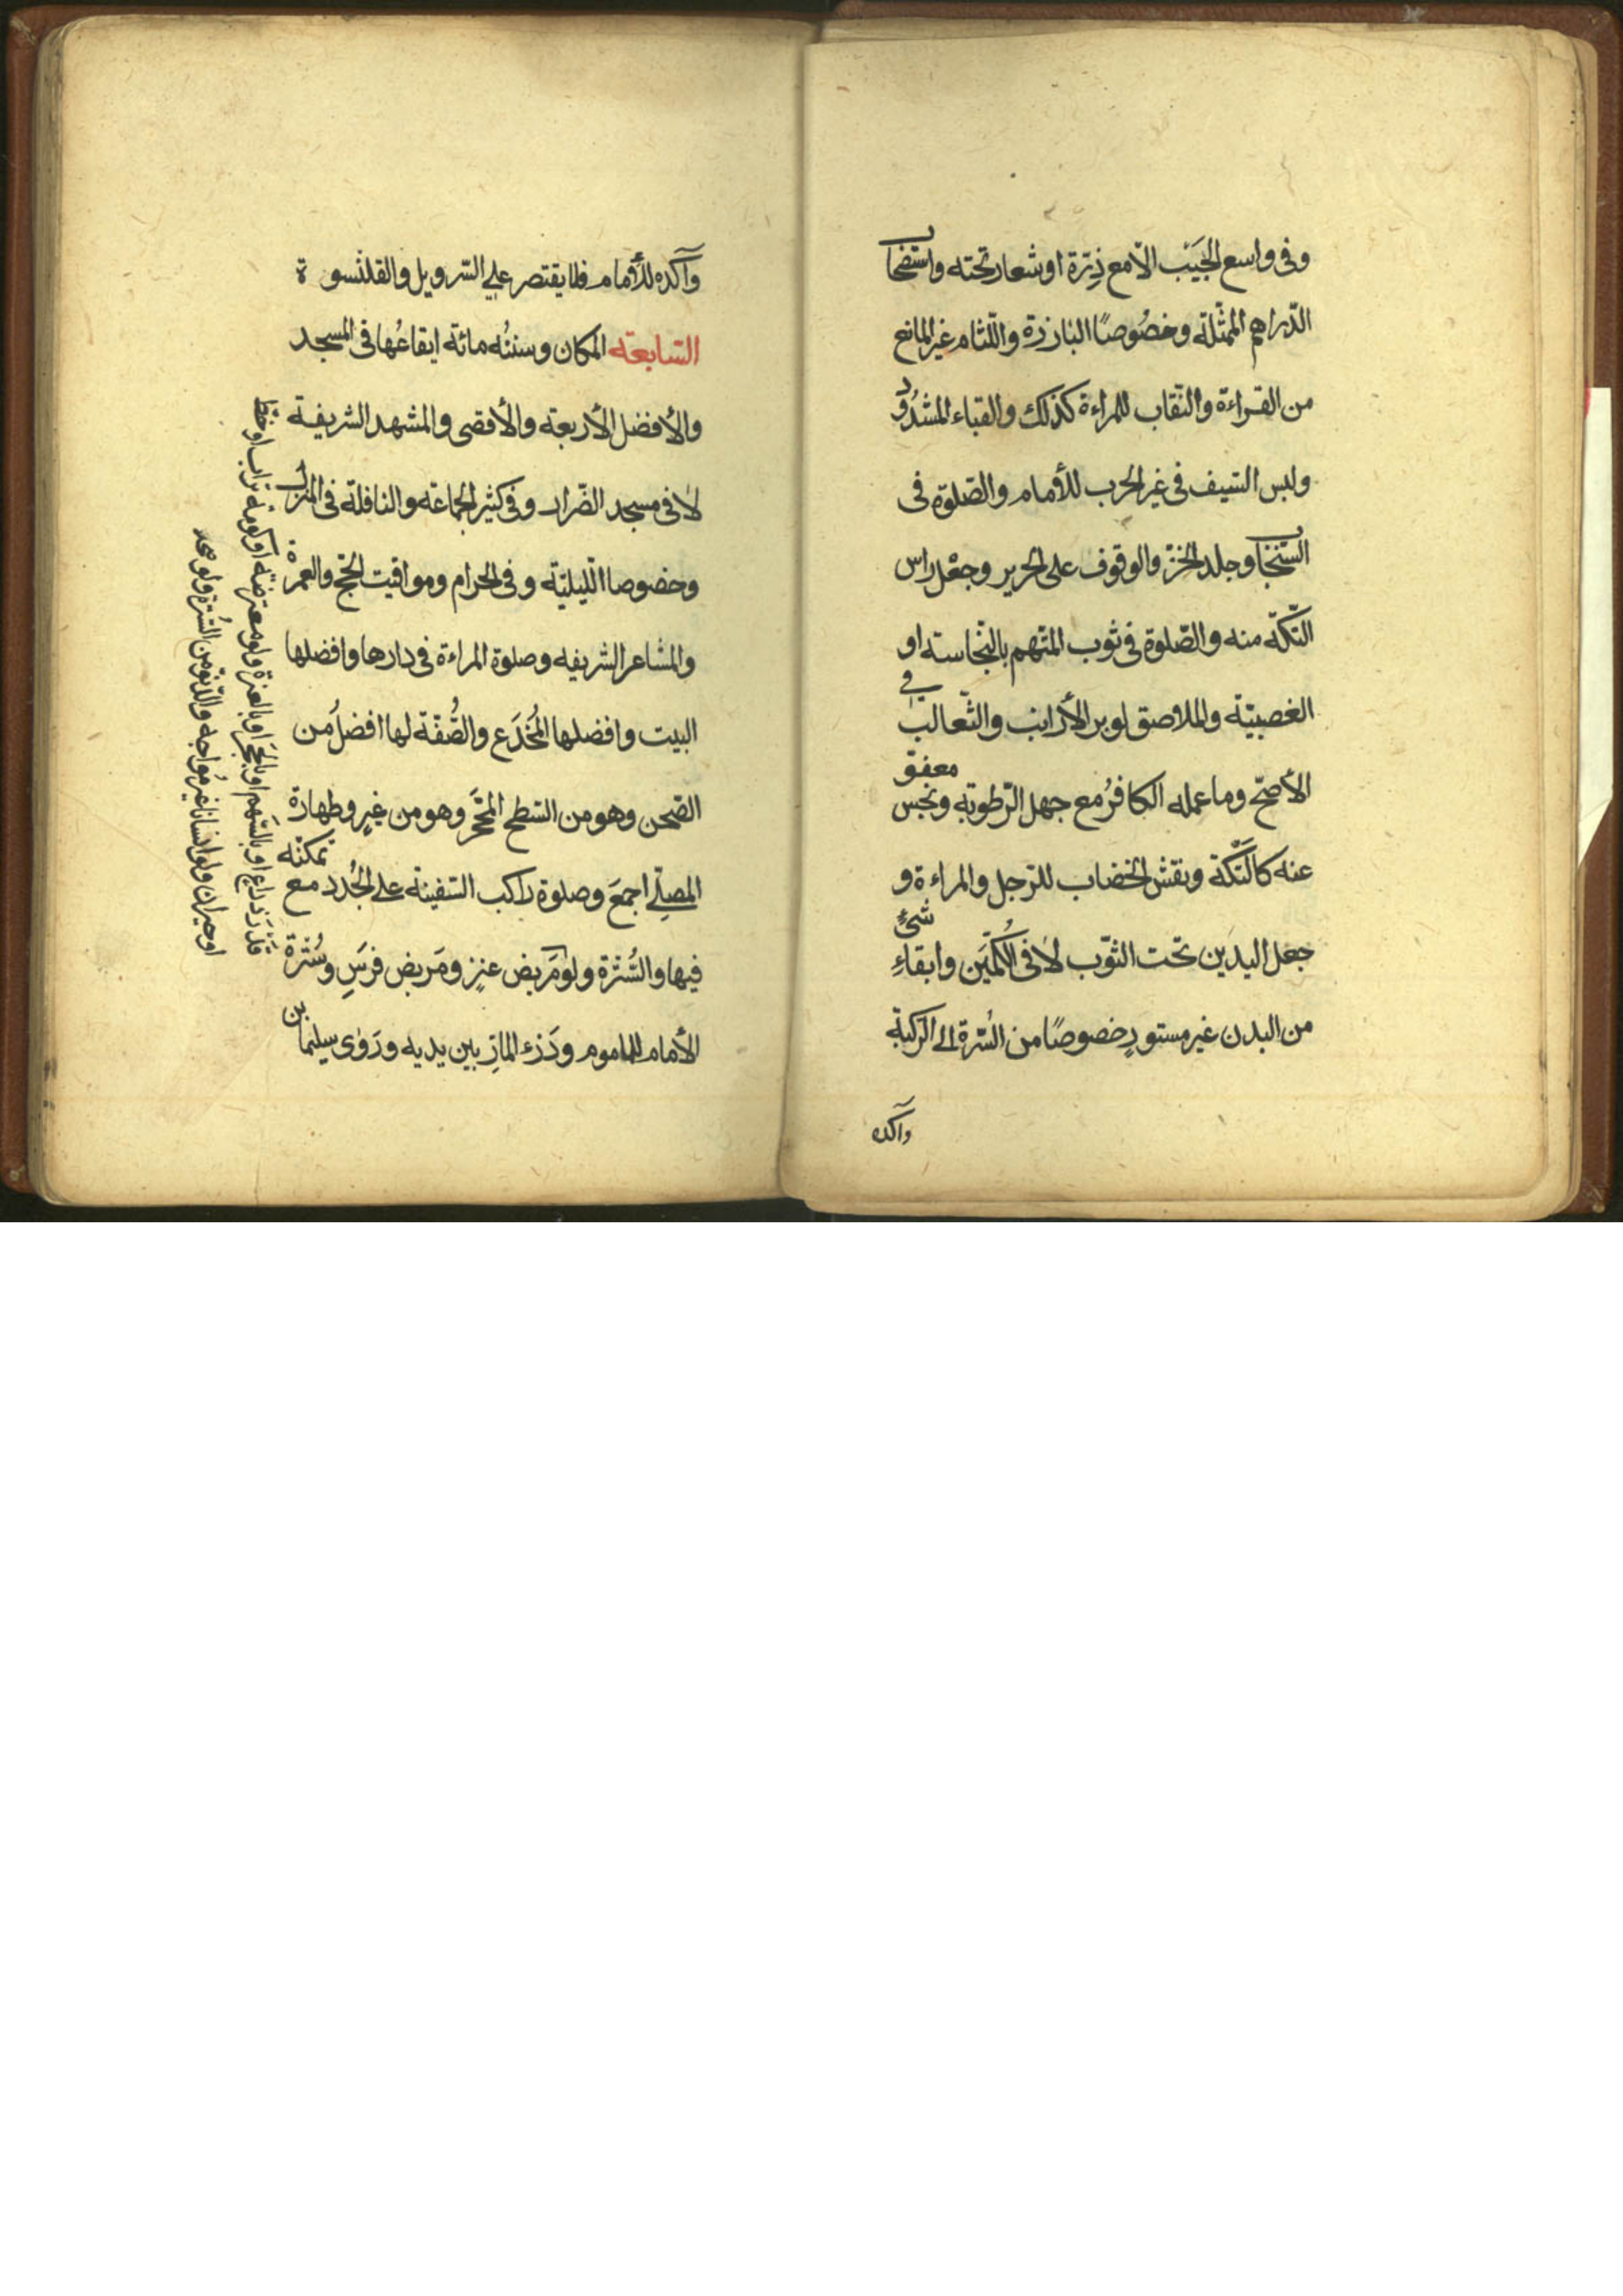 وفى واسع الجَيْب الّا مع زِرّة او شعار تحته واستصحاب
الدّراهم الممثّلة وخصُوصًا البارزة واللّثام غير المانع
من القراءة والنقاب للمراءة كذلك والقباء المشدُود
ولبس السّيف فى غير الحرب للأمام والصّلوة فى
السّنجاب وجلد الخزّ والوقوف على الحرير وجعْل راس
التّكّة منه والصّلوة فى ثوب المتّهم بالنّجاسته او
الغصبيّة والملاصق لوبر الأرانب والثّعالب فى
الأصحّ وما عمله الكافرُ مع جهل الرّطوبة ونجس معفوّ
عنه كالتّكّة ونقش الخضاب للرّجل والمراءة و
جعل اليدين تحت الثّوب لا فى الكُمّين وابقاءِ شئٍ
من البدن غير مستورٍ خصوصًا من السُّرّة الى الرّكبة
واكده
وآكده للأمام فلا يقتصر على السّرويل والقلنسوة
السّابعة المكان وسننُه مائة ايقاعُها فى المسجد
والأفضل الأربعة والأقصى والمشهد الشريفة
لا فى مسجد الضّرار وفى كثير الجماعة والنافلة فى المنزل
وخصوصا اللّيليّة وفى الحرام ومواقيت الحَجّ والعمرة
والمشاعر الشريفه وصلوة المراءة فى دارها وافضلها
البيت وافضلها المُخْدَع والصُّفّة لها افضلُ من
الصّحن وهو من السّطح المحَجّر وهو من غيره وطهارة
المصلّى اجمعَ وصلوة راكب السّفينة على الجُدد مع تمكنّه
فيها والسُّترة ولو مَربض عنزٍ ومَربض فرسٍ وسُترة
الأمام للماموم ودَرْء المارّ بين يديه ورَوٰى سيلمان بن
قَدْرَ ذراع او بالسّهم او بالحَجَر او بالعنزة ولو معترضة او كومة تراب او خطّ
او حيوان ولو انسانا غير مُواجه والدّنوّ من السُترة ولو